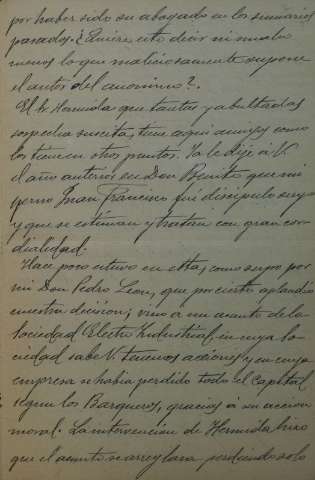 por haber sido su abogado en los sumarios
pasados. ¿Quiere esto decir ni mucho
menos lo que maliciosamente supone
el autor del anonimo?.
El Sr. Hermida que tantas y abultadas
sospechas suscita, tiene aqui amigos como
los tiene en otros puntos. Ya le dije á V.
el año anterior en Don Benito que mi
yerno Juan Francisco fué discipulo suyo
y que se estiman y tratan con gran cor-
dialidad.
Hace poco estuvo en esta, como supo por
mi Don Pedro Leon, que por cierto aplaudió
nuestra decision; vino á un asunto de la
Sociedad Electro Industrial, en cuya So-
ciedad sabe V. tenemos acciones y en cuya
empresa se habia perdido todo el capital
segun los Barqueros, gracias á su accion
moral. La intervencion de Hermida hizo
que el asunto se arreglara perdiendo solo